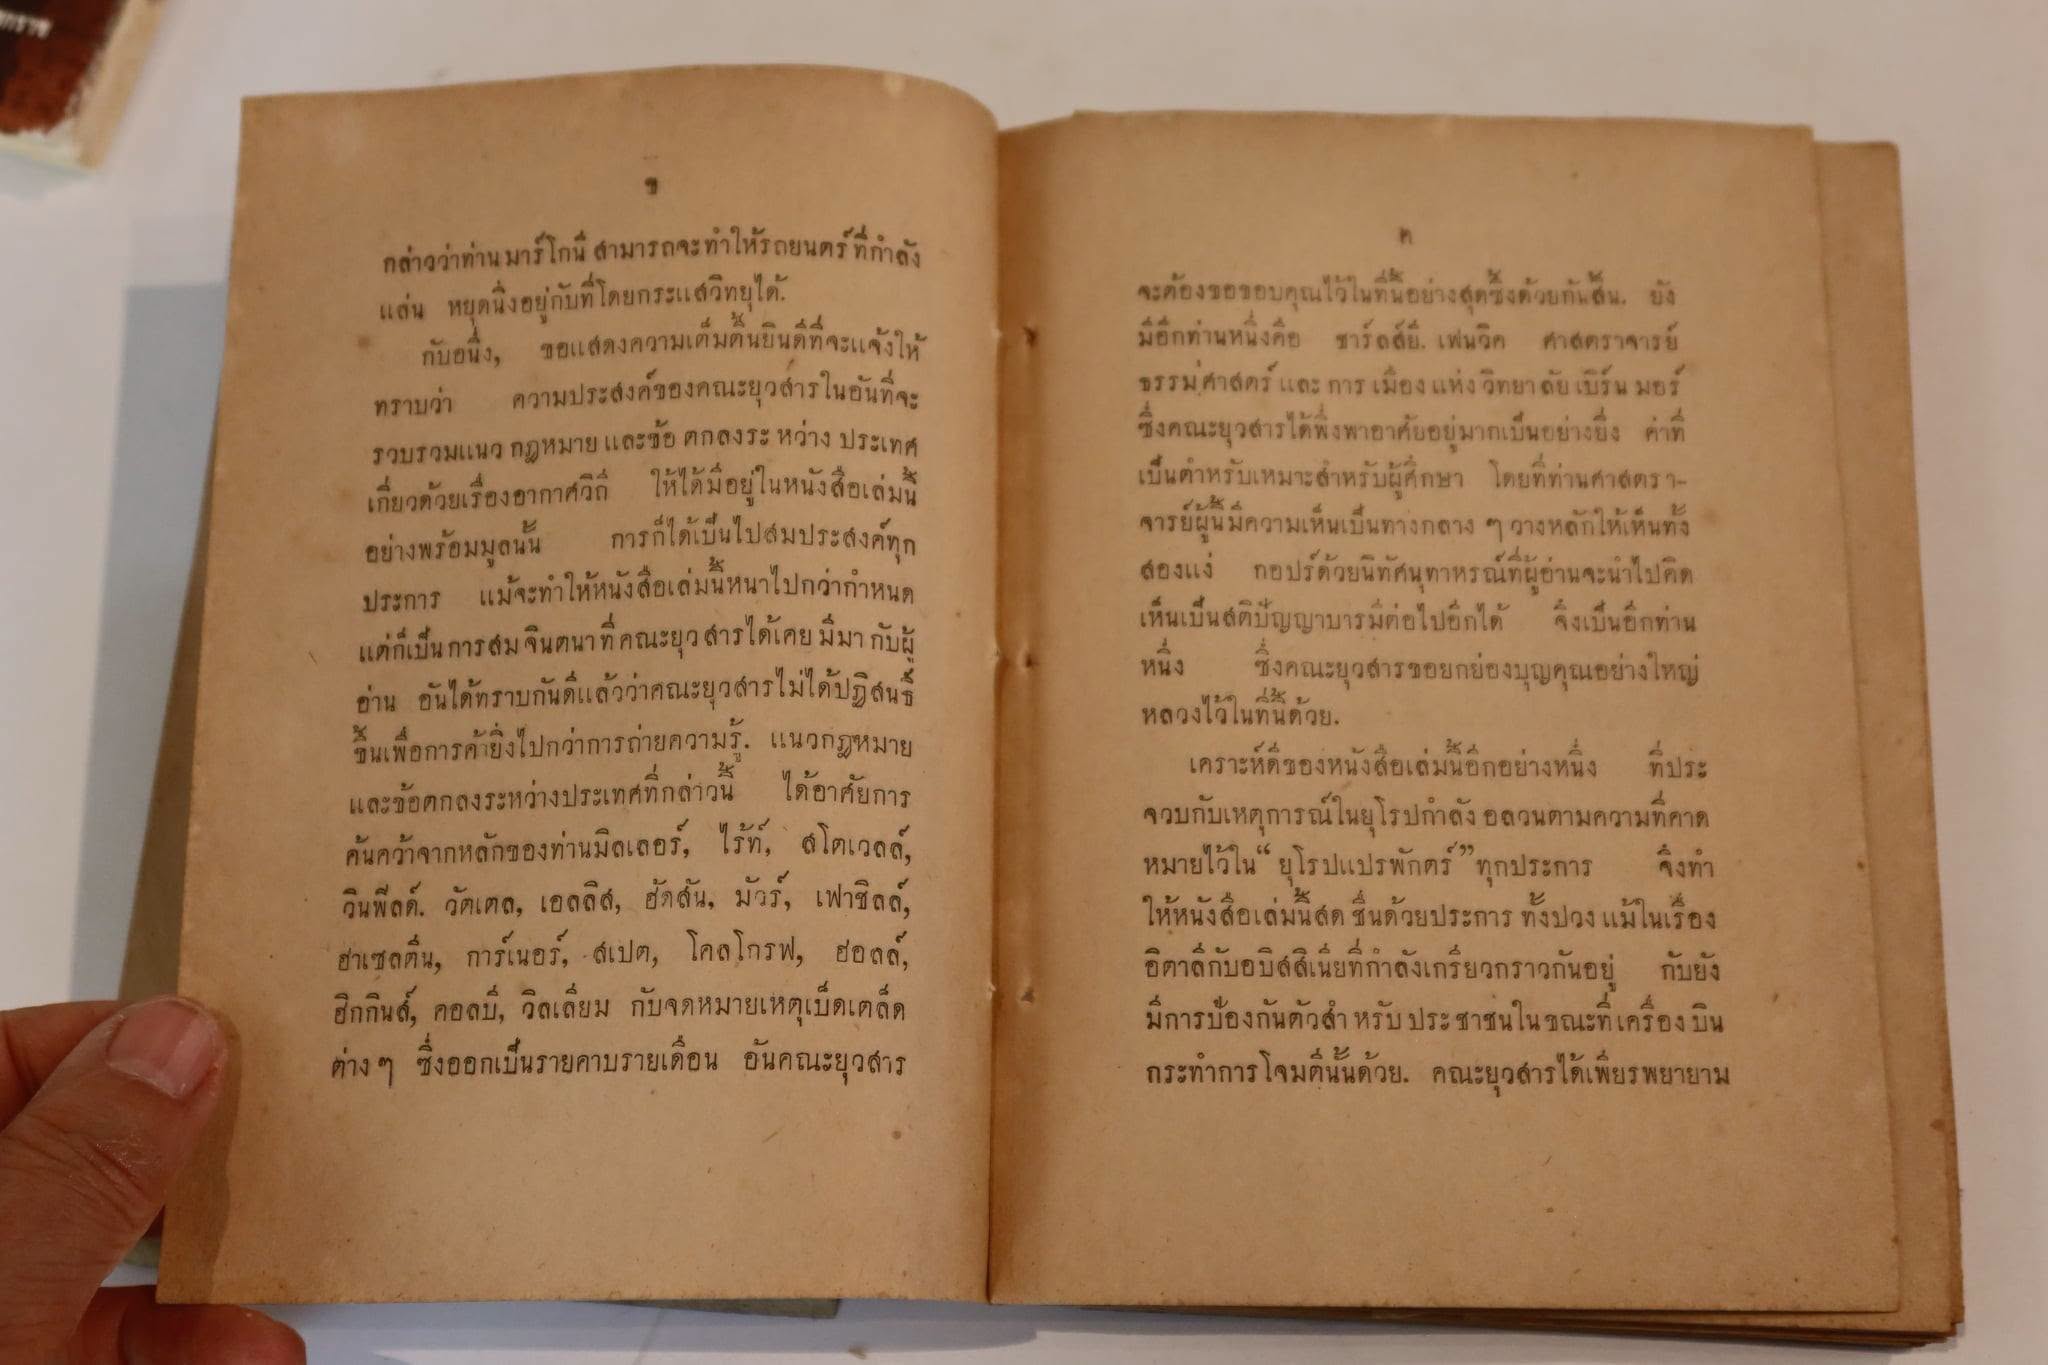 ข
กล่าวว่าท่านมาร์โกนีสามารถจะทำให้รถยนตร์ที่กำลัง
แล่น หยุดนิ่งอยู่กับที่โดยกระแสวิทยุได้.
กับอนึ่ง, ขอแสดงความเต็มตื้นยินดีที่จะแจ้งให้
ทราบว่า ความประสงค์ของคณะยุวสารในอันที่จะ
รวบรวมแนวกฎหมายและข้อตกลงระหว่างประเทศ
เกี่ยวด้วยเรื่องอากาศวิถี ให้ได้มีอยู่ในหนังสือเล่มนี้
อย่างพร้อมมูลนั้น การก็ได้เป็นไปสมประสงค์ทุก
ประการ แม้จะทำให้หนังสือเล่มนี้หนาไปกว่ากำหนด
แต่ก็เป็นการสมจินตนาที่คณะยุวสารได้เคยมีมากับผู้
อ่าน อันได้ทราบกันดีแล้วว่าคณะยุวสารไม่ได้ปฏิสนธิ์
ขึ้นเพื่อการค้ายิ่งไปกว่าการถ่ายความรู้. แนวกฎหมาย
และข้อตกลงระหว่างประเทศที่กล่าวนี้ ได้อาศัยการ
ค้นคว้าจากหลักของท่านมิลเลอร์, ไร้ท์, สโตเวลล์,
วินฟีลด์. วัตเตล, เอลลิส, ฮัดสัน, มัวร์, เฟาชิลล์,
ฮาเซลตีน, การ์เนอร์, สเปต, โคลโกรฟ, ฮอลล์,
ฮิกกินส์, คอลบี, วิลเลียม กับจดหมายเหตุเบ็ดเตล็ด
ต่างๆ ซึ่งออกเป็นรายคาบรายเดือน อันคณะยุวสาร
ค
จะต้องขอขอบคุณไว้ในที่นี้อย่างสุดซึ้งด้วยทั้นสิ้น. ยัง
มีอีกท่านหนึ่งคือ ชาร์ลส์ยี. เฟนวิค ศาสตราจารย์
ธรรมศาสตร์และการเมืองแห่งวิทยาลัยเบิร์นมอร์
ซึ่งคณะยุวสารได้พึ่งพาอาศัยอยู่มากเป็นอย่างยิ่ง ค่าที่
เป็นตำหรับเหมาะสำหรับผู้ศึกษา โดยที่ท่านศาสตรา-
จารย์ผู้นี้มีความเห็นเป็นทางกลาง ๆ วางหลักให้เห็นทั้ง
สองแง่ กอปร์ด้วยนิทัศนุทาหรณ์ที่ผู้อ่านจะนำไปคิด
เห็นเป็นสติปัญญาบารมีต่อไปอีกได้ จึงเป็นอีกท่าน
หนึ่ง ซึ่งคณะยุวสารขอยกย่องบุญคุณอย่างใหญ่
หลวงไว้ในที่นี้ด้วย.
เคราะห์ดีของหนังสือเล่มนี้อีกอย่างหนึ่ง ที่ประ
จวบกับเหตุการณ์ในยุโรปกำลังอลวนตามความที่คาด
หมายไว้ใน “ยุโรปแปรพักตร์” ทุกประการ จึงทำ
ให้หนังสือเล่มนี้สดชื่นด้วยประการทั้งปวง แม้ในเรื่อง
อิตาลีกับอบิสสิเนียที่กำลังเกรียวกราวกันอยู่ กับยัง
มีการป้องกันตัวสำหรับประชาชนในขณะที่เครื่องบิน
กระทำการโจมตีนั้นด้วย. คณะยุวสารได้เพียรพยายาม